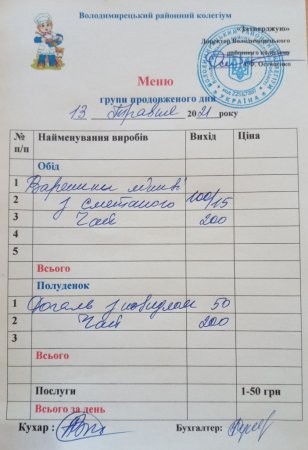 Володимирецький районний колегіум
«Затверджую»
Директор Володимирецького
районного колегіуму
Меню
групи продовженого дня
13 Травня 2021 року
№ п/п Найменування виробів Вихід Ціна
Обід
1 Вареники ліниві
2 з сметаною 100/15
3 Чай 200
4
5
Всього
Полуденок
1 Рогаль з повидлом 50
2 Чай 200
3
Всього
Послуги 1-50 грн
Всього за день
Кухар : Бухгалтер: